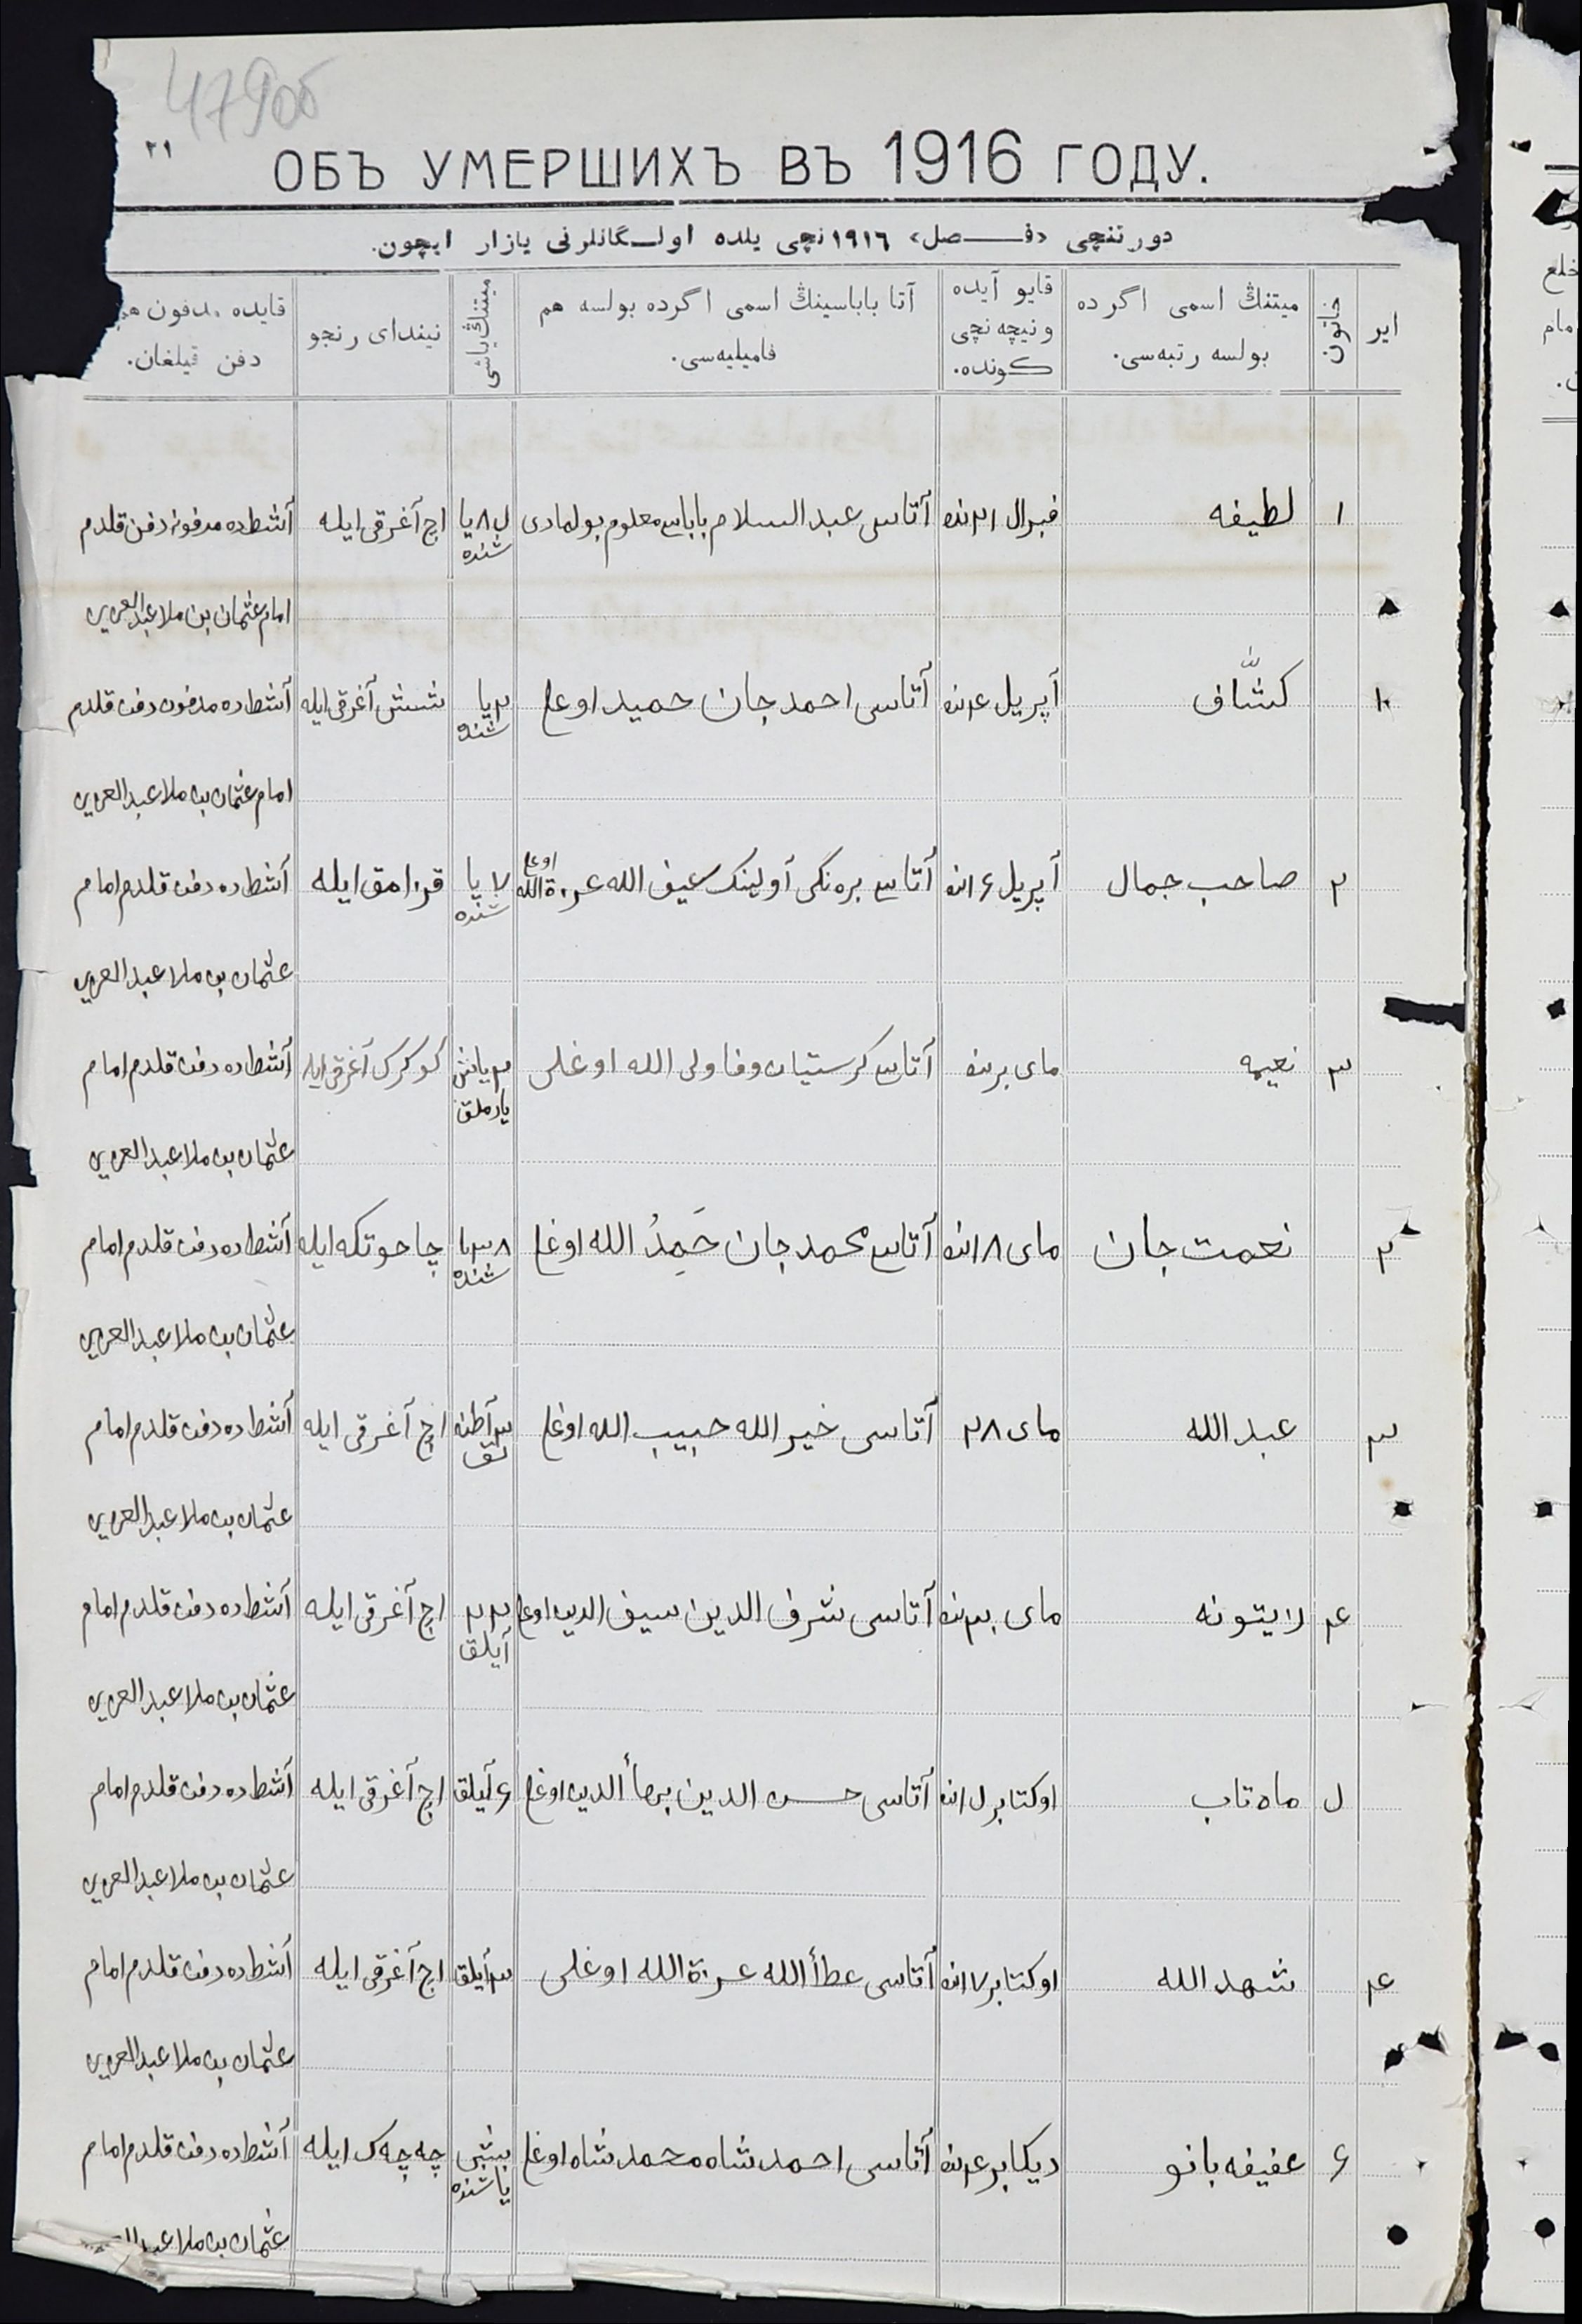 479об
٢١
ОБЪ УМЕРШИХЪ ВЪ 1916 ГОДУ.
دورتنچی «فـــصل» ١٩١٦نچی یلده اولـگانلرنی یازار ایچون.
ایر
خاتون
میتنڭ اسمی اگرده
بولسه رتبه‌سی.
قایو آیده
و نیچه نچی
کونده.
آتا باباسینڭ اسمی اگرده بولسه هم
فامیلیه‌سی.
میتنڭ یاشی
نیندای رنجو
قایده مدفون هم
دفن قیلغان.
١ لطیفه فبرال ٢١نده آتاسی عبد السلام باباسی معلوم بولمادی ٨ یا اچ آغرقی ایله آشطاده مدفونه دفن قلدم
شنده
امام عثمان بن ملا عبد العزیز
١ کشاف أپریل ١٤نده آتاسی احمد جان حمید اوغلی ٢ یا شش آغرقی ایله آشطاده مدفون دفن قلدم
شنده
امام عثمان بن ملا عبد العزیز
٢ صاحب جمال أپریل ١٦نده آتاسی برنکی آولینک سیف الله عزة الله اوغلی ٧ یا قزامق ایله آشطاده دفن قلدم امام
شنده
عثمان بن ملا عبد العزیز
٣ نعیمه مای برنده آتاسی کرستیان وفا ولی الله اوغلی ٢ یاش کوکرک آغرقی ایله آشطاده دفن قلدم امام
یارملق
عثمان بن ملا عبد العزیز
٢ نعمت جان مای ١٨نده آتاسی محمد جان حمید الله اوغلی ٣٨ یا چاحوتکه ایله آشطاده دفن قلدم امام
شنده
عثمان بن ملا عبد العزیز
٣ عبد الله مای ٢٨ آتاسی خیر الله حبیب الله اوغلی ٣ آطنه اچ آغرقی ایله آشطاده دفن قلدم امام
لق
عثمان بن ملا عبد العزیز
٤ زیتونه مای نده آتاسی شرف الدین سیف الدین اوغلی ٢٢ اچ آغرقی ایله آشطاده دفن قلدم امام
آیلق
عثمان بن ملا عبد العزیز
ل ماه تاب اوکتابر نده آتاسی حسن الدین بهأ الدین اوغلی ٦ آیلق اچ آغرقی ایله آشطاده دفن قلدم امام
عثمان بن ملا عبد العزیز
٤ شهد الله اوکتابر ١٧نده آتاسی عطأ الله عزة الله اوغلی ٣ آیلق اچ آغرقی ایله آشطاده دفن قلدم امام
عثمان بن ملا عبد العزیز
٦ عفیفه بانو دیکابر ١٤نده آتاسی احمد شاه محمد شاه اوغلی بیشچی چه چه ک ایله آشطاده دفن قلدم امام
یاشنده
عثمان بن ملا